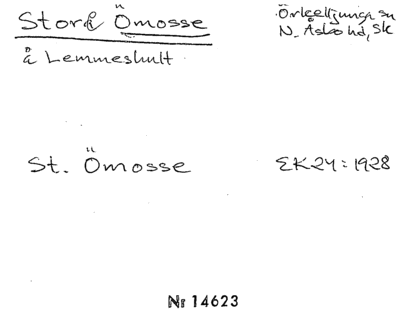 Store Ömosse
Örkelljunga sn
N. Åsbo hd, Sk
å Lemmeshult
St. Ömosse
EK24:1928
Nr 14623